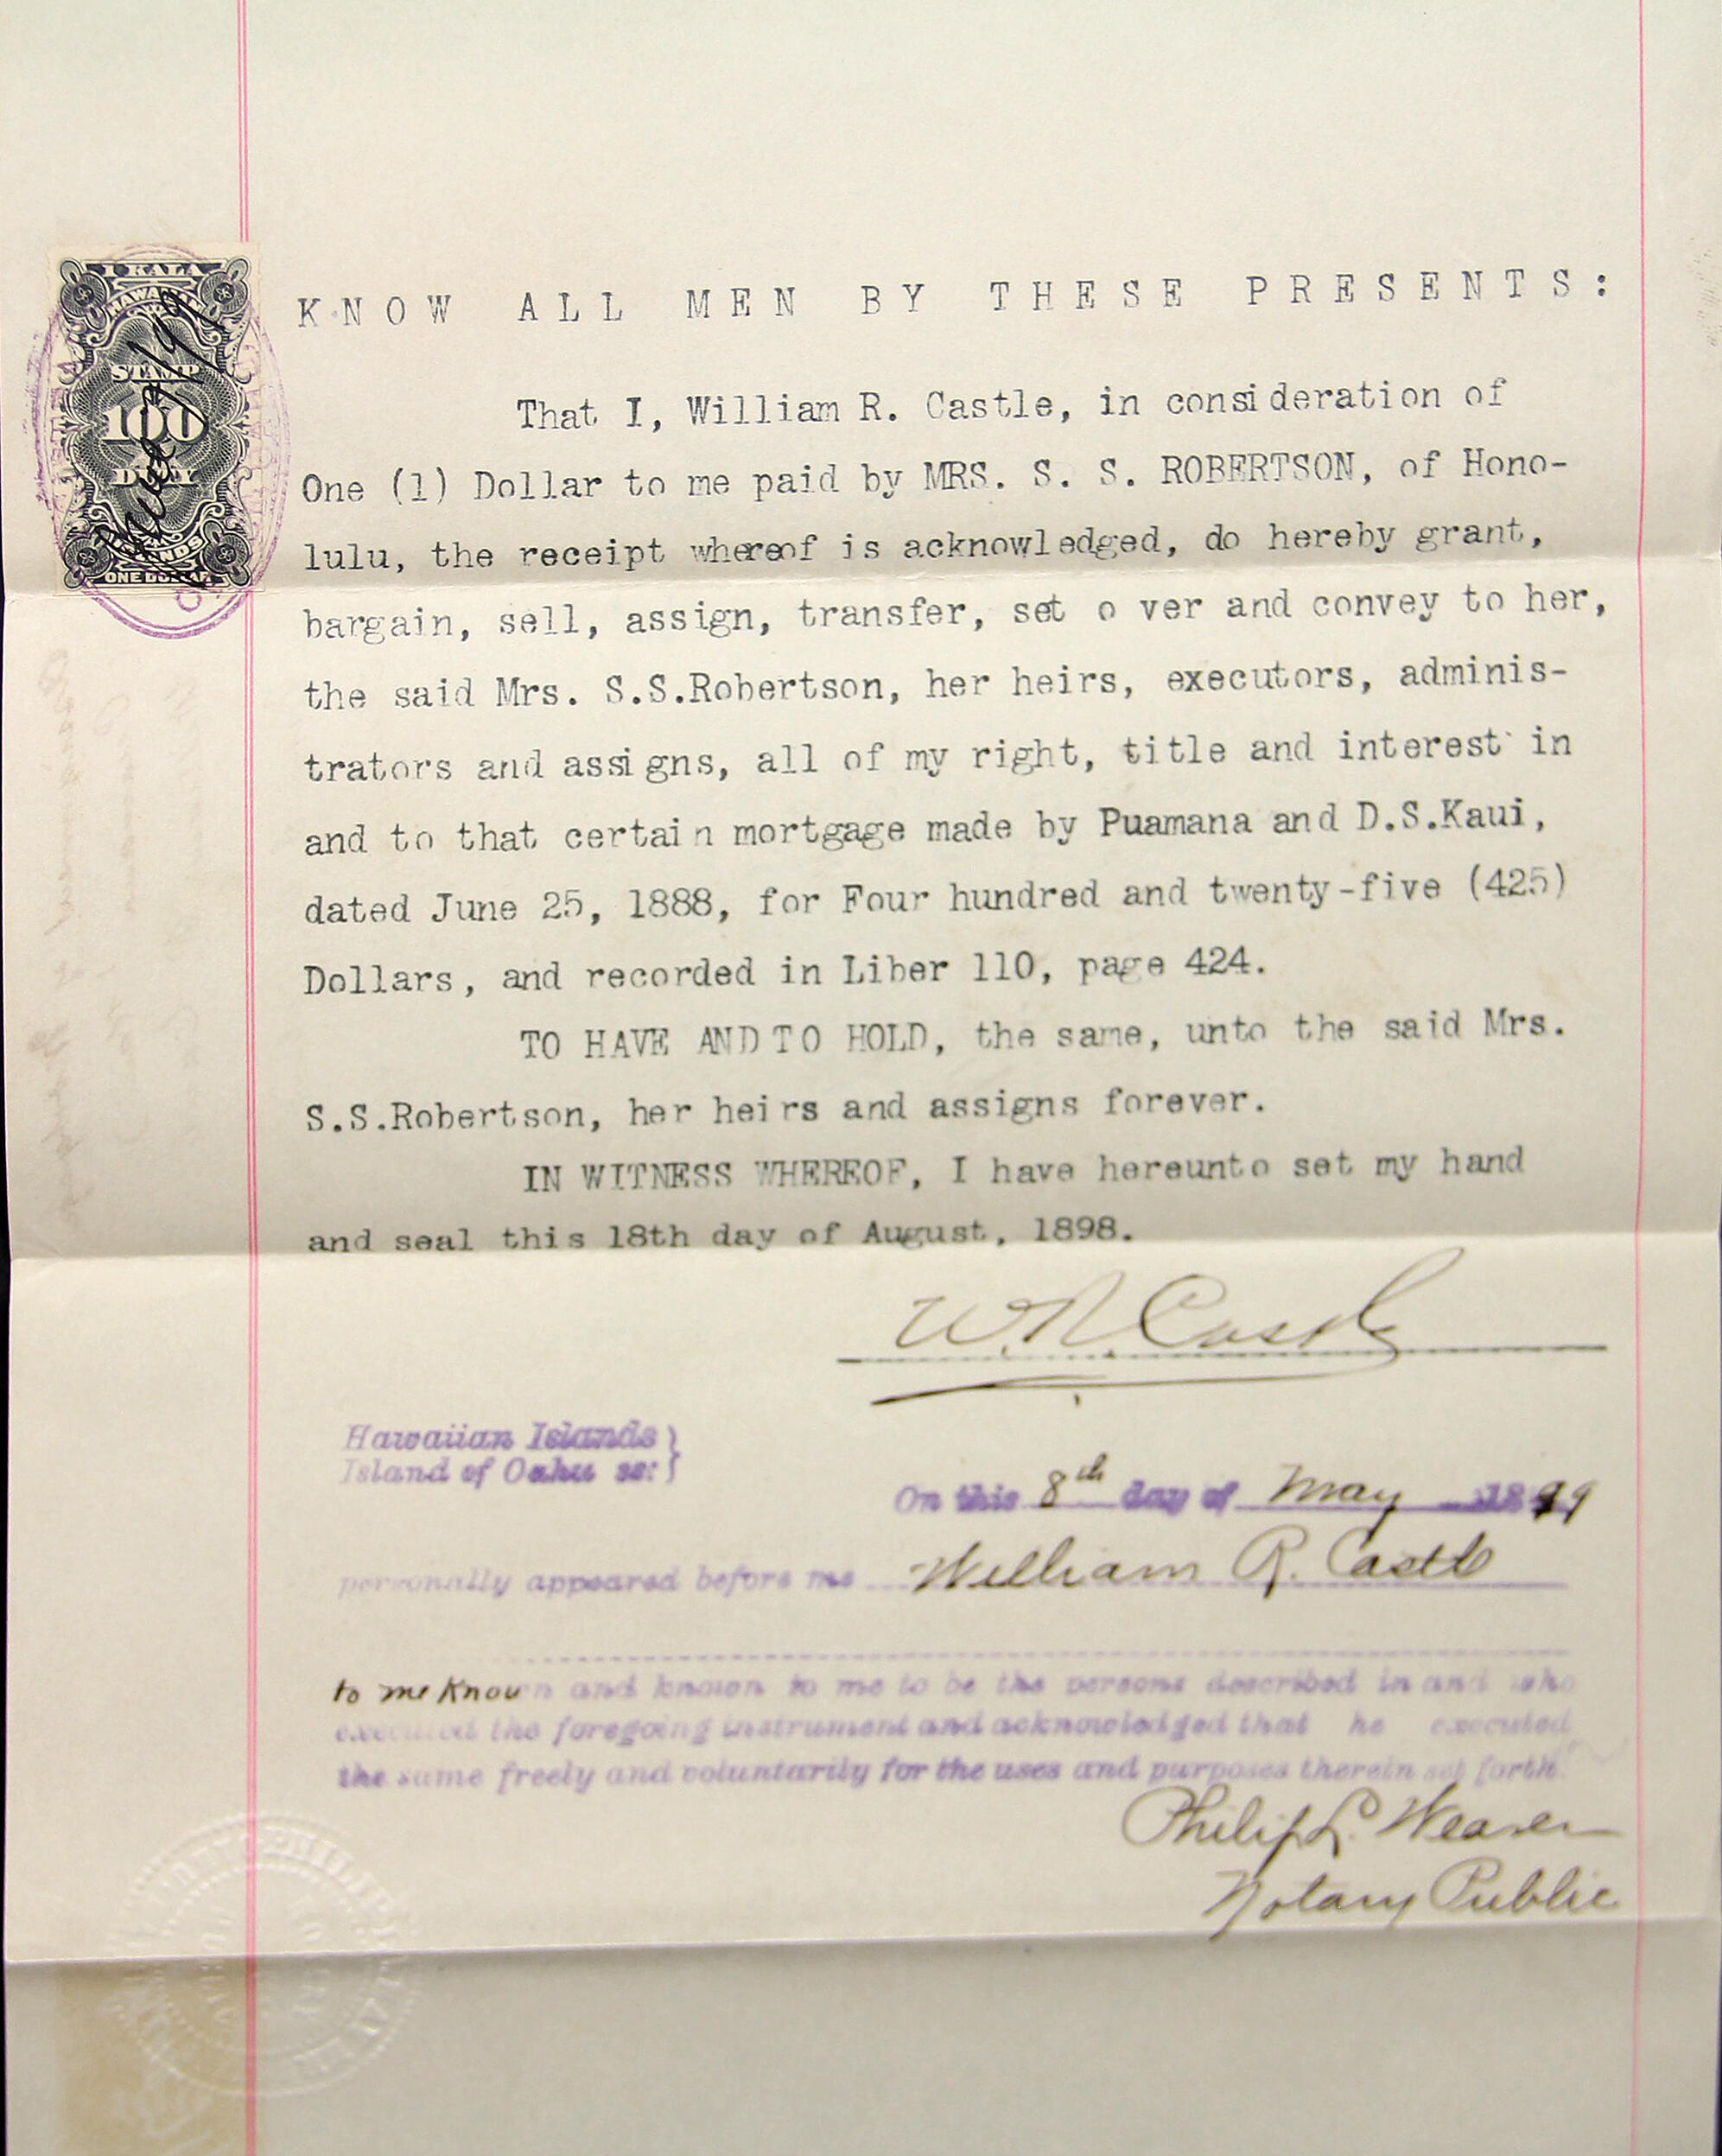 1 KALA
HAWAIIAN
STAMP
100
DUTY
ISLANDS
ONE DOLLAR
KNOW ALL MEN BY THESE PRESENTS:
That I, William R. Castle, in consideration of
One (1) Dollar to me paid by MRS. S. S. ROBERTSON, of Hono-
lulu, the receipt whereof is acknowledged, do hereby grant,
bargain, sell, assign, transfer, set o ver and convey to her,
the said Mrs. S.S.Robertson, her heirs, executors, adminis-
trators and assigns, all of my right, title and interest in
and to that certain mortgage made by Puamana and D.S.Kaui,
dated June 25, 1888, for Four hundred and twenty-five (425)
Dollars, and recorded in Liber 110, page 424.
TO HAVE AND TO HOLD, the same, unto the said Mrs.
S.S.Robertson, her heirs and assigns forever.
IN WITNESS WHEREOF, I have hereunto set my hand
and seal this 18th day of August, 1898.
W.R. Castle
Hawaiian Islands }
Island of Oahu ss: }
On this 8th day of May 1899
personally appeared before me William R. Castle
to me known and known to me to be the persons described in and who
executed the foregoing instrument and acknowledged that he executed
the same freely and voluntarily for the uses and purposes therein set forth.
Philip L. Weaver
Notary Public